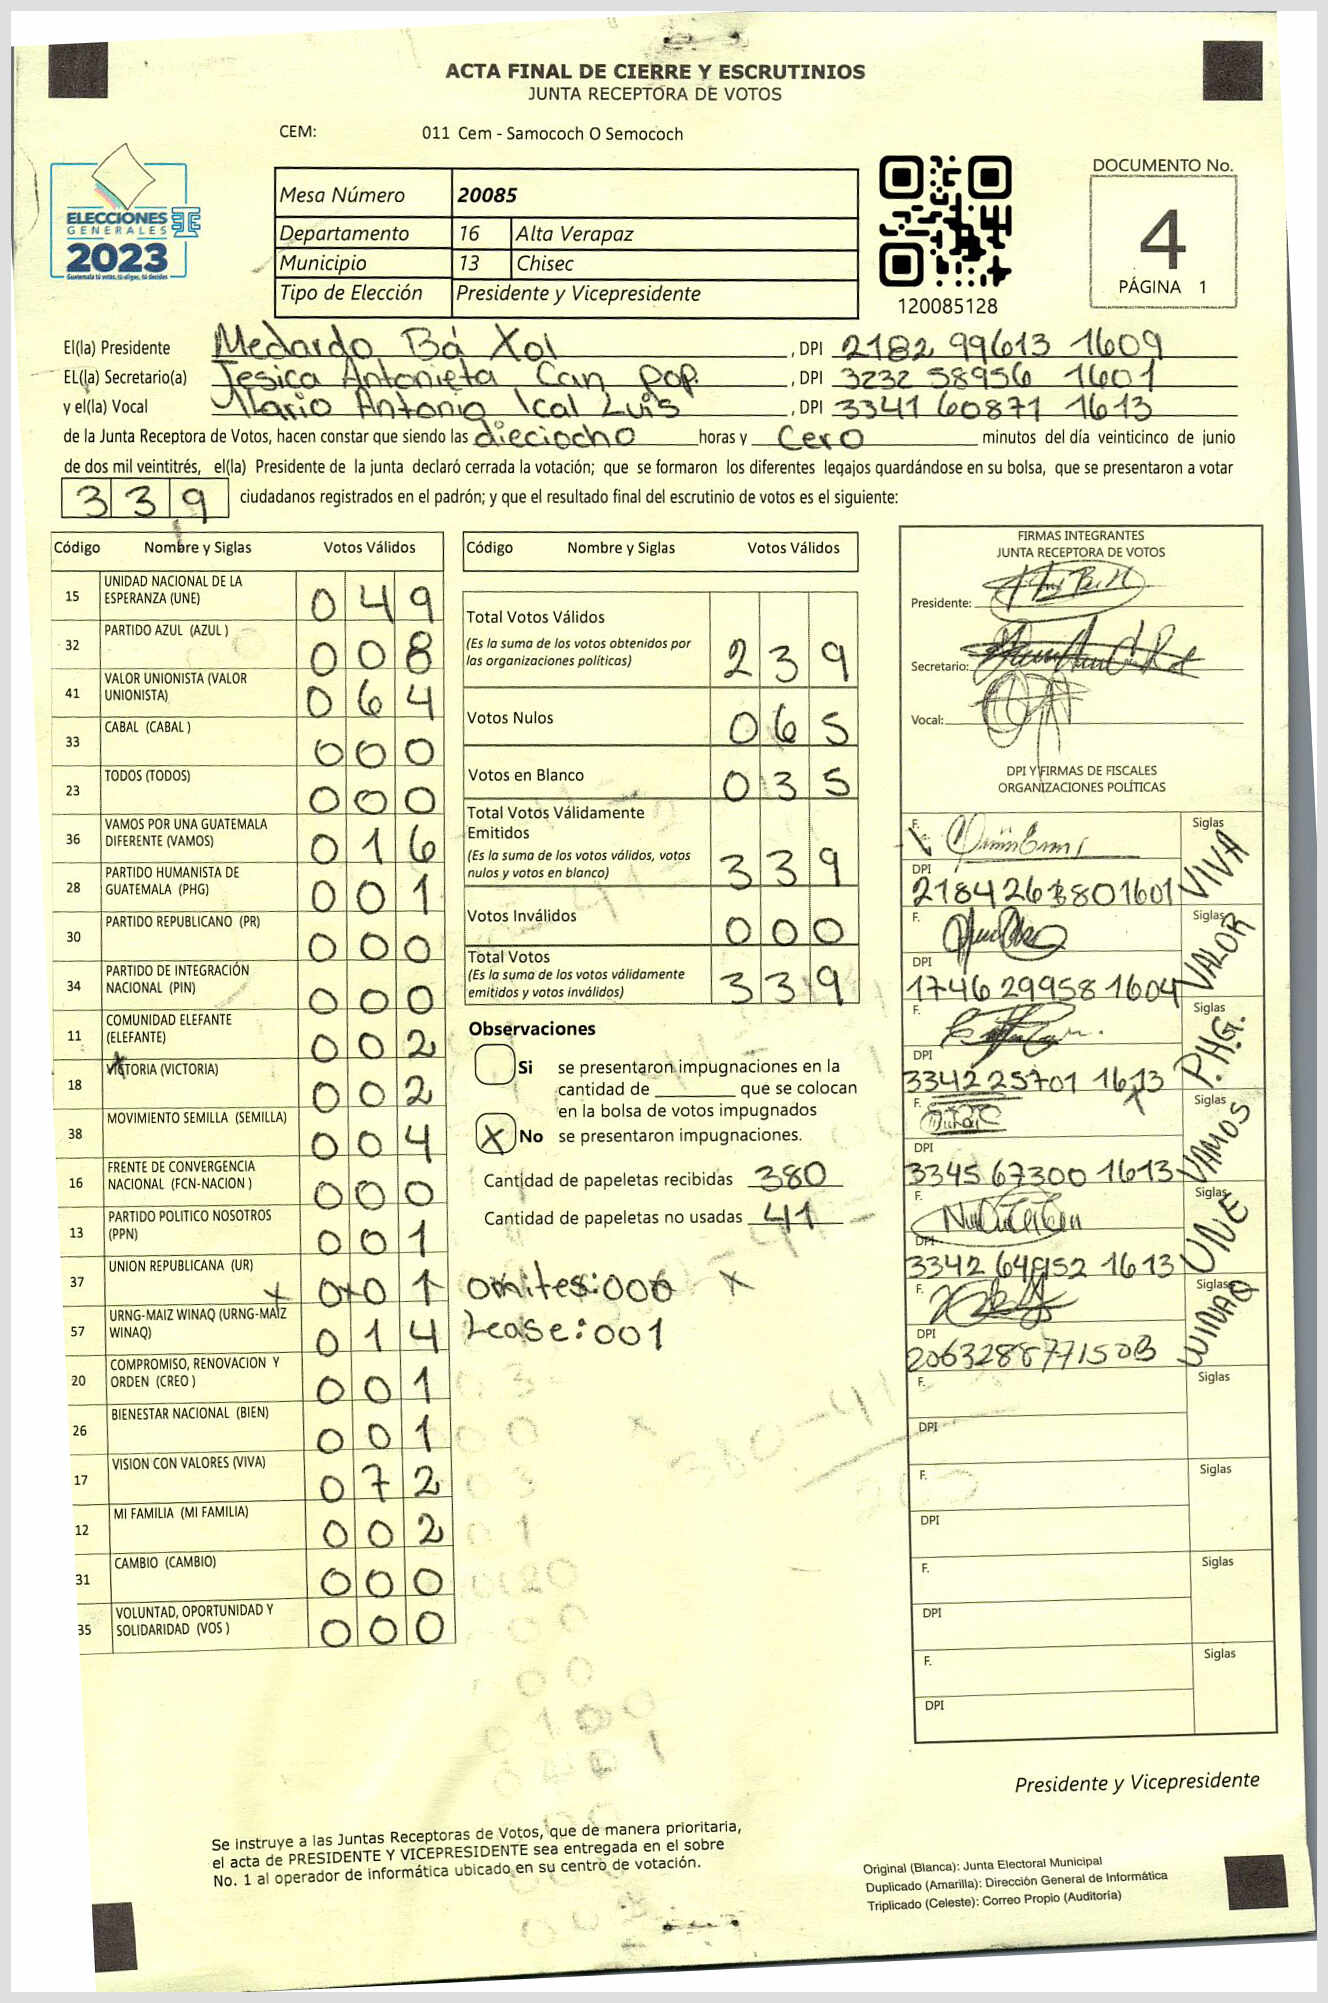 ACTA FINAL DE CIERRE Y ESCRUTINIOS
JUNTA RECEPTORA DE VOTOS
CEM: 011 Cem - Samococh O Semococh
ELECCIONES
GENERALES
2023
Guatemala tú votas, tú eliges, tú decides
Mesa Número 20085
Departamento 16 Alta Verapaz
Municipio 13 Chisec
Tipo de Elección Presidente y Vicepresidente
120085128
DOCUMENTO No.
4
PÁGINA 1
El(la) Presidente Medardo Bá Xol , DPI 2182 99613 1609
EL(la) Secretario(a) Jesica Antonieta Can pop. , DPI 3232 58956 1601
y el(la) Vocal Mario Antonio Ical Luis , DPI 3341 60871 1613
de la Junta Receptora de Votos, hacen constar que siendo las dieciocho horas y cero minutos del día veinticinco de junio
de dos mil veintitrés, el(la) Presidente de la junta declaró cerrada la votación; que se formaron los diferentes legajos quardándose en su bolsa, que se presentaron a votar
339 ciudadanos registrados en el padrón; y que el resultado final del escrutinio de votos es el siguiente:
Código Nombre y Siglas Votos Válidos
15 UNIDAD NACIONAL DE LA ESPERANZA (UNE) 049
32 PARTIDO AZUL (AZUL ) 008
41 VALOR UNIONISTA (VALOR UNIONISTA) 064
33 CABAL (CABAL ) 000
23 TODOS (TODOS) 000
36 VAMOS POR UNA GUATEMALA DIFERENTE (VAMOS) 016
28 PARTIDO HUMANISTA DE GUATEMALA (PHG) 001
30 PARTIDO REPUBLICANO (PR) 000
34 PARTIDO DE INTEGRACIÓN NACIONAL (PIN) 000
11 COMUNIDAD ELEFANTE (ELEFANTE) 002
18 VICTORIA (VICTORIA) 002
38 MOVIMIENTO SEMILLA (SEMILLA) 004
16 FRENTE DE CONVERGENCIA NACIONAL (FCN-NACION ) 000
13 PARTIDO POLITICO NOSOTROS (PPN) 001
37 UNION REPUBLICANA (UR) x 0x01
57 URNG-MAIZ WINAQ (URNG-MAIZ WINAQ) 014
20 COMPROMISO, RENOVACION Y ORDEN (CREO ) 001
26 BIENESTAR NACIONAL (BIEN) 001
17 VISION CON VALORES (VIVA) 072
12 MI FAMILIA (MI FAMILIA) 002
31 CAMBIO (CAMBIO) 000
35 VOLUNTAD, OPORTUNIDAD Y SOLIDARIDAD (VOS ) 000
Código Nombre y Siglas Votos Válidos
Total Votos Válidos 239
(Es la suma de los votos obtenidos por
las organizaciones políticas)
Votos Nulos 065
Votos en Blanco 035
Total Votos Válidamente
Emitidos
(Es la suma de los votos válidos, votos
nulos y votos en blanco) 339
Votos Inválidos 000
Total Votos
(Es la suma de los votos válidamente
emitidos y votos inválidos) 339
Observaciones
Si se presentaron impugnaciones en la
cantidad de ________ que se colocan
en la bolsa de votos impugnados
X No se presentaron impugnaciones.
Cantidad de papeletas recibidas 380
Cantidad de papeletas no usadas 41
omites:000 x
Lease:001
FIRMAS INTEGRANTES
JUNTA RECEPTORA DE VOTOS
Presidente:
Secretario:
Vocal:
DPI Y FIRMAS DE FISCALES
ORGANIZACIONES POLÍTICAS
F. Siglas VIVA
DPI
F. Siglas VALOR
DPI
1746 29958 1604
F. Siglas P.H.G.
DPI
3342 25701 1613
F. Siglas VAMOS
DPI
3345 67300 1613
F. Siglas UNE
DPI
F. Siglas WINAQ
DPI
F. Siglas
DPI
F. Siglas
DPI
F. Siglas
DPI
F. Siglas
DPI
Presidente y Vicepresidente
Se instruye a las Juntas Receptoras de Votos, que de manera prioritaria,
el acta de PRESIDENTE Y VICEPRESIDENTE sea entregada en el sobre
No. 1 al operador de informática ubicado en su centro de votación.
Original (Blanca): Junta Electoral Municipal
Duplicado (Amarilla): Dirección General de Informática
Triplicado (Celeste): Correo Propio (Auditoría)